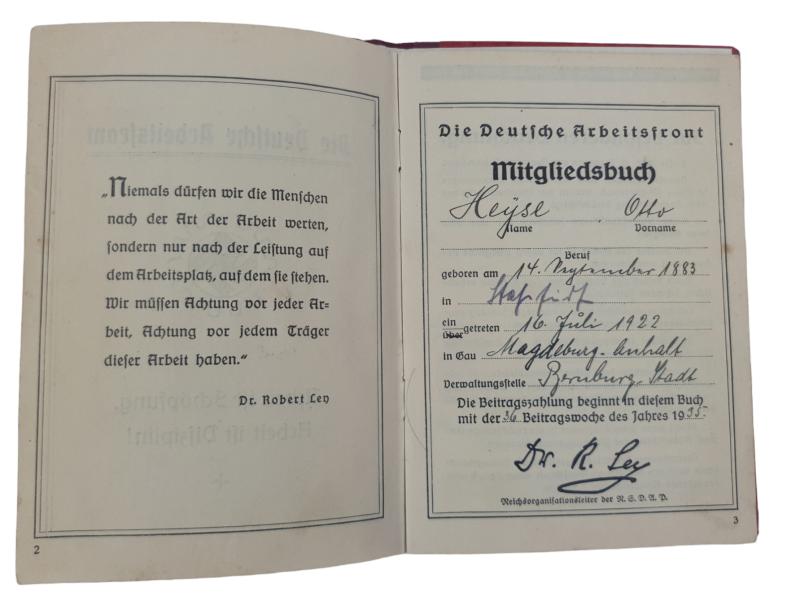 „Niemals dürfen wir die Menschen
nach der Art der Arbeit werten,
sondern nur nach der Leistung auf
dem Arbeitsplatz, auf dem sie stehen.
Wir müssen Achtung vor jeder Ar=
beit, Achtung vor jedem Träger
dieser Arbeit haben.“
Dr. Robert Ley
2
Die Deutsche Arbeitsfront
Mitgliedsbuch
Heyse Otto
Name Vorname
Beruf
geboren am 14. September 1883
in Staßfurt
ein
über getreten 16. Juli 1922
in Gau Magdeburg-Anhalt
Verwaltungsstelle Bernburg-Stadt
Die Beitragszahlung beginnt in diesem Buch
mit der 36 Beitragswoche des Jahres 1935.
Dr. R. Ley
Reichsorganisationsleiter der N.S.D.A.P.
3